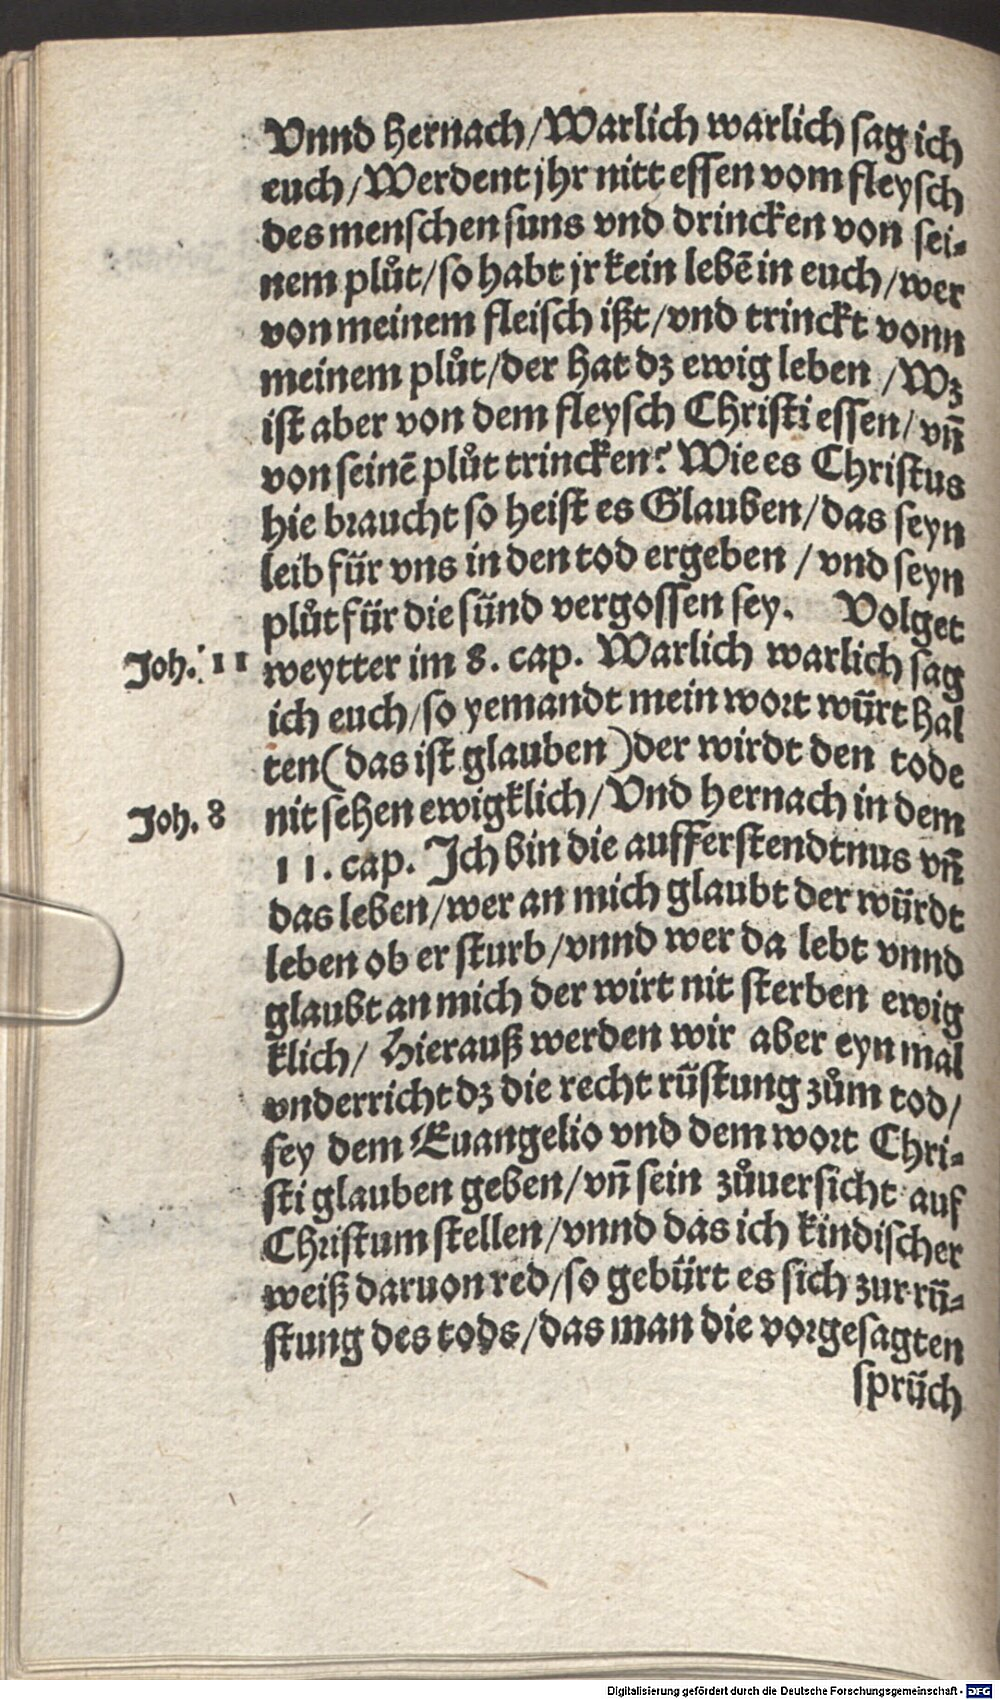 Vnnd hernach / Warlich warlich sag ich
euch / Werdent jhr nitt essen vom fleysch
des menschen suns vnd drincken von sei⸗
nem plůt / so habt jr kein lebē in euch / wer
von meinem fleisch ißt / vnd trinckt vonn
meinem plůt / der hat dz ewig leben / Wz
ist aber von dem fleysch Christi essen / vn̄
von seinē plůt trincken? Wie es Christus
hie braucht so heist es Glauben / das seyn
leib für vns in den tod ergeben / vnd seyn
plůt für die sünd vergossen sey. Volget
Joh. 11 weytter im 8. cap. Warlich warlich sag
ich euch / so yemandt mein wort würt hal
ten (das ist glauben) der wirdt den tode
Joh. 8 nit sehen ewigklich / Vnd hernach in dem
11. cap. Ich bin die aufferstendtnus vn̄
das leben / wer an mich glaubt der würdt
leben ob er sturb / vnnd wer da lebt vnnd
glaubt an mich der wirt nit sterben ewig
klich / Hierauß werden wir aber eyn mal
vnderricht dz die recht rüstung zům tod /
sey dem Euangelio vnd dem wort Chri⸗
sti glauben geben / vn̄ sein zůuersicht auf
Christum stellen / vnnd das ich kindischer
weiß daruon red / so gebürt es sich zur rü⸗
stung des tods / das man die vorgesagten
sprüch
Digitalisierung gefördert durch die Deutsche Forschungsgemeinschaft - DFG